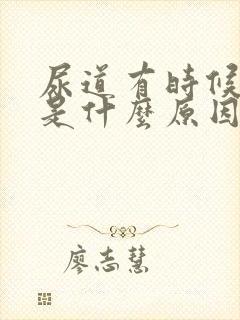 尿道有時候
是什麼原因
廖志慧